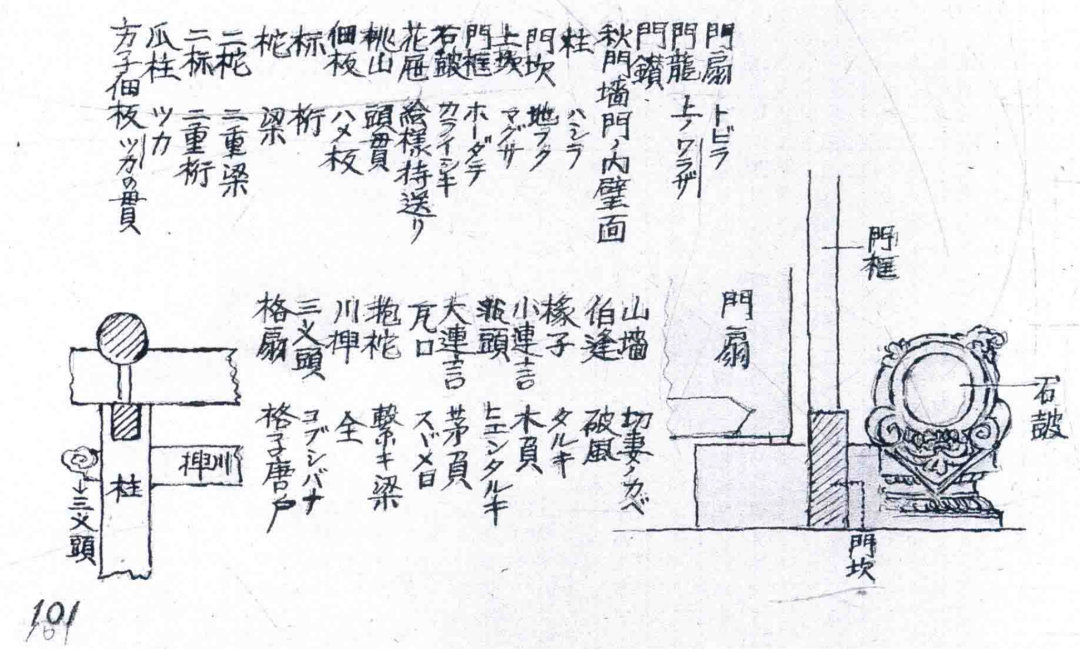 門扇 トビラ
門龍 上ノワラザ
門鑚
秋門墻門ノ内壁面
柱 ハシラ
門坎 地フク
上坎 マグサ
門框 ホーダテ
石皷 カライシキ
花㞕 絵様持送り
桃山 頭貫
佃板 ハメ板
标 桁
柁 梁
二柁 二重梁
二标 二重桁
瓜柱 ツカ
方子佃板 ツカの貫
山墻 切妻ノカベ
伯逢 破風
椽子 タルキ
小連吉 木負
頭 ヒエンタルキ
大連吉 茅負
瓦口 スズメ口
抱柁 繋ギ梁
川押 仝
三义頭 コブシバナ
格扇 格子唐戸
門框
門扇
石皷
門坎
押川
柱
三义頭
101
101